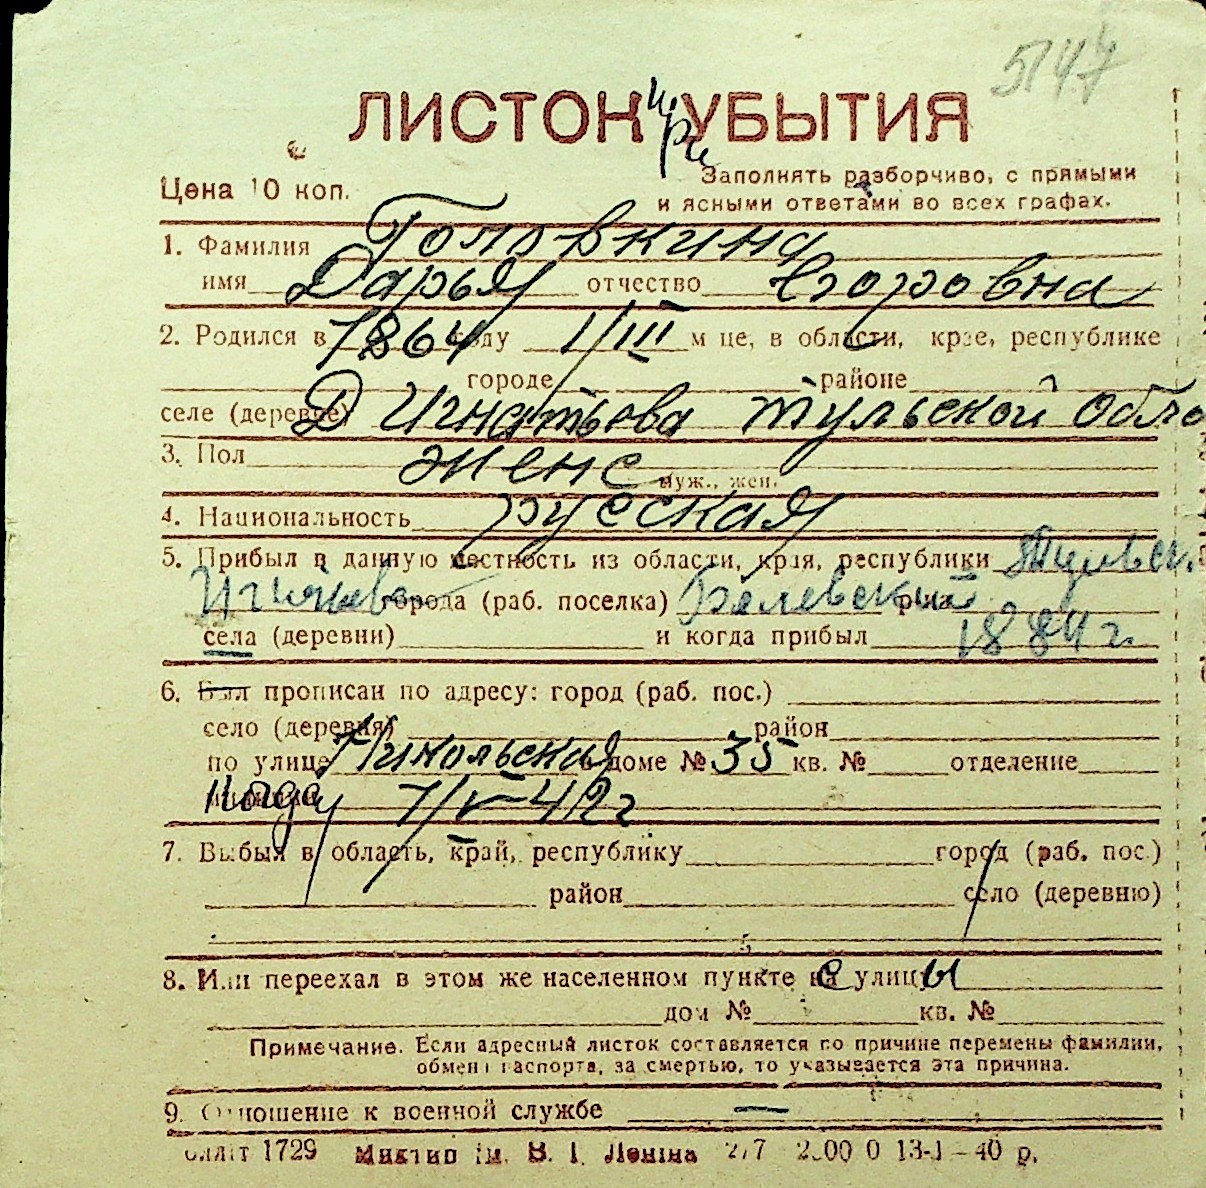 5747
ЛИСТОК УБЫТИЯ
при
Цена 10 коп.
Заполнять разборчиво, с прямыми
и ясными ответами во всех графах.
1. Фамилия Головкина
имя Дарья отчество Егоровна
2. Родился в 1864 году 1/III м-це, в области, крае, республике
городе районе
селе (деревне) Д Игнатьева Тульской обла
3. Пол женс
муж., жен.
4. Национальность русская
5. Прибыл в данную местность из области, края, республики Тульск.
города (раб. поселка) Белевский р-на
села (деревни) и когда прибыл 1884 г.
6. Был прописан по адресу: город (раб. пос.)
село (деревня) район
по улице Никольская доме № 35 кв. № отделение
1/V-42г
7. Выбыл в область, край, республику город (раб. пос.)
район село (деревню)
8. Или переехал в этом же населенном пункте с улицы
дом № кв. №
Примечание. Если адресный листок составляется по причине перемены фамилии,
обмена паспорта, за смертью, то указывается эта причина.
9. Отношение к военной службе —
1729 В. І. Леніна 13-І-40 р.